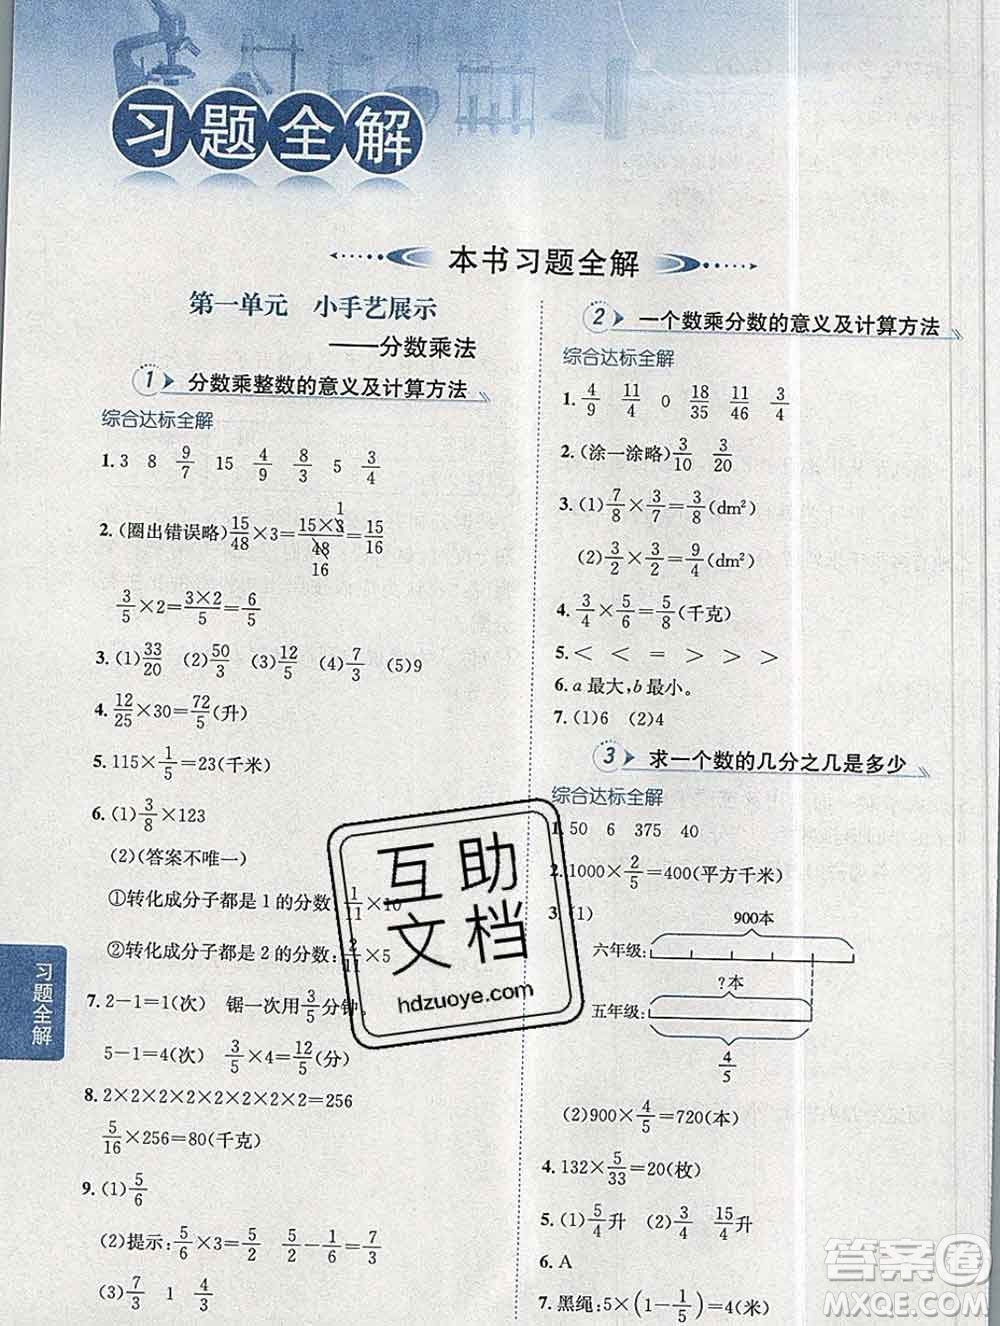 习题全解
本书习题全解
第一单元 小手艺展示
——分数乘法
1 分数乘整数的意义及计算方法
综合达标全解
1. 3 8 9/7 15 4/9 8/3 5 3/4
2. (圈出错误略) 15/48×3=15×3/48=15/16
1
16
3/5×2=3×2/5=6/5
3. (1)33/20 (2)50/3 (3)12/5 (4)7/3 (5)9
4. 12/25×30=72/5(升)
5. 115×1/5=23(千米)
6. (1)3/8×123
(2)(答案不唯一)
①转化成分子都是1的分数:1/11×10
②转化成分子都是2的分数:2/11×5
7. 2-1=1(次) 锯一次用3/5分钟,
5-1=4(次) 3/5×4=12/5(分)
8. 2×2×2×2×2×2×2×2=256
5/16×256=80(千克)
9. (1)5/6
(2)提示:5/6×3=5/2 5/2-1/6=7/3
(3)7/3 1 4/3
习题全解
2 一个数乘分数的意义及计算方法
综合达标全解
1. 4/9 11/4 0 18/35 11/46 3/4
2. (涂一涂略)3/10 3/20
3. (1)7/8×3/7=3/8(dm²)
(2)3/2×3/2=9/4(dm²)
4. 3/4×5/6=5/8(千克)
5. < < = > > >
6. a最大,b最小。
7. (1)6 (2)4
3 求一个数的几分之几是多少
综合达标全解
1. 50 6 375 40
2. 1000×2/5=400(平方千米)
3. (1)
900本
六年级:
?本
五年级:
4/5
(2)900×4/5=720(本)
4. 132×5/33=20(枚)
5. (1)5/4升 (2)3/4 15/4升
6. A
7. 黑绳:5×(1-1/5)=4(米)
互助
文档
hdzuoye.com
答案圈
MXQE.COM